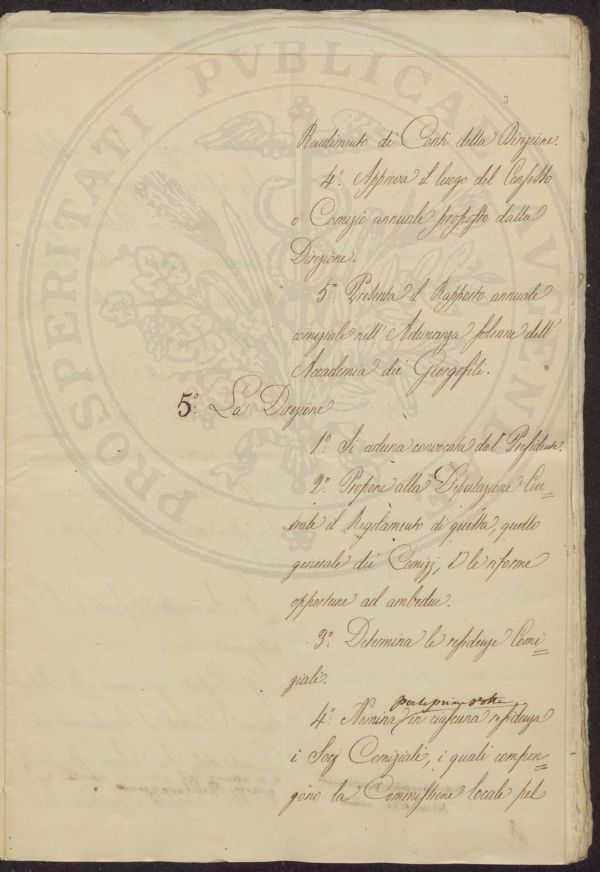 3
Rendimento di Conti della Direzione.
4° Approva il luogo del Consesso
o Comizio annuale proposto dalla
Direzione.
5° Presenta il Rapporto annuale
comiziale nell'Adunanza solenne dell'
Accademia dei Georgofili.
5° La Direzione
1° Si aduna convocata dal Presidente.
2° Propone alla Deputazione Cen=
trale il Regolamento di questa, quello
generale dei Comizj, e le riforme
opportune ad ambedue.
3° Determina le residenze Comi=
ziali.
per la prima volta
4° Nomina in ciascuna residenza
i Socj Comiziali, i quali compon=
gono la Commissione locale pel
PROSPERITATI PUBLICAE